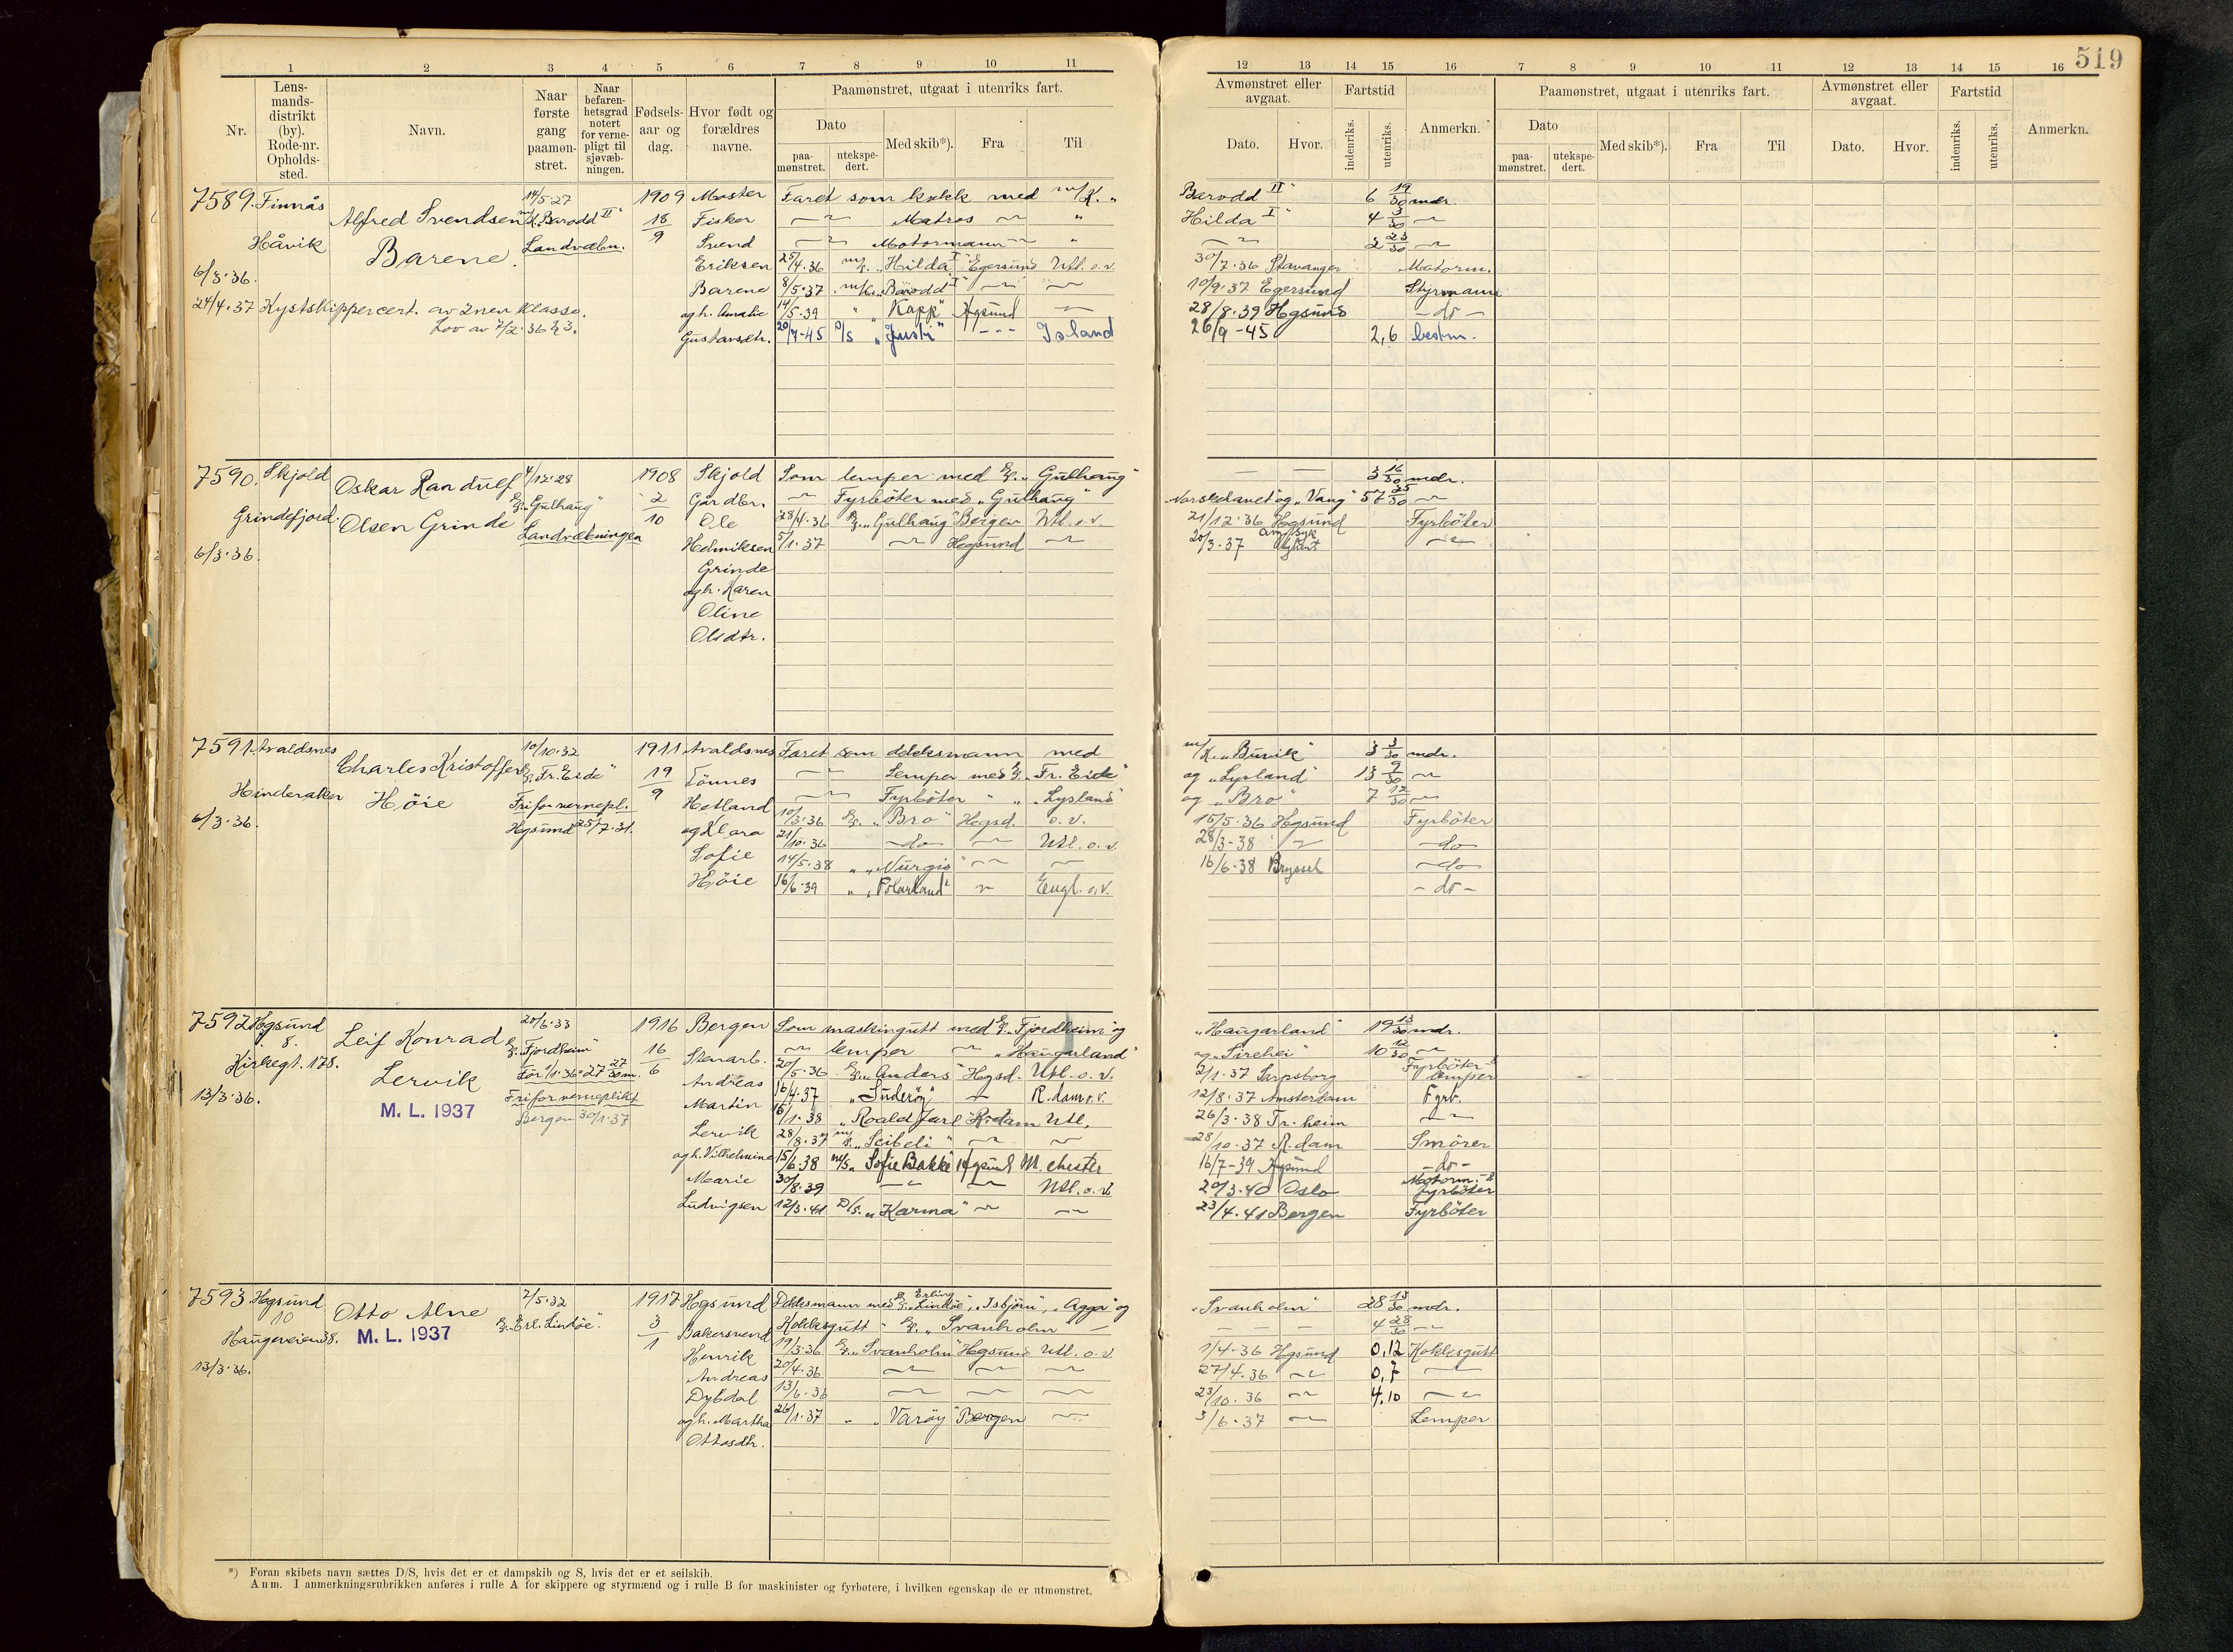 519
1 2 3 4 5 6 7 8 9 10 11
Nr.
Lens-mands-distrikt (by). Rode-nr. Opholds-sted.
Navn.
Naar første gang paamøn-stret.
Naar befaren-hetsgrad notert for verne-pligt til sjøvæb-ningen.
Fødsels-aar og dag.
Hvor født og forældres navne.
Paamønstret, utgaat i utenriks fart.
Dato
paa-mønstret.
utekspe-dert.
Med skib*).
Fra
Til
12 13 14 15 16 7 8 9 10 11 12 13 14 15 16
Avmønstret eller avgaat.
Dato. Hvor.
Fartstid
indenriks. utenriks.
Anmerkn.
Paamønstret, utgaat i utenriks fart.
Dato
paa-mønstret.
utekspe-dert.
Med skib*). Fra Til
Avmønstret eller avgaat.
Dato. Hvor.
Fartstid
indenriks. utenriks.
Anmerkn.
7589. Finnås
Håvik
6/3.36.
24/4.37 Kystskippercert. av 2nen klasse.
Lov av 7/2.36 § 3.
Alfred Svendsen
Barene.
14/5.27
m/K. Barodd II"
Landvæbn.
1909
18/9
Moster
Fisker
Svend
Eriksen
Barene
og h. Amalie
Gustavsdtr.
Faret som kokk med m/K. "
Matros
Motormann
25/4.36 "Hilda I" Egersund Utl. o.v.
8/5.37 m/k. "Barodd I"
14/5.39 " "Kapp" Hgsund
20/7-45 D/S "Justi" -"- Island
Barodd II" 6 19/30 mdr.
Hilda I" 4 3/30
2 23/30
30/7.36 Stavanger Motorm.
10/9.37 Egersund Styrmann
28/8.39 Hgsund - do -
26/9-45 2,6 bestm.
7590. Skjold
Grindefjord
6/3.36.
Oskar Randulf
Olsen Grinde
4/12.28
"Gulhaug"
Landvæbningen
1908
2/10
Skjold
Gårdbr.
Ole
Helmiksen
Grinde
og h. Karen
Oline
Olsdtr.
Som lemper med "Gulhaug"
Fyrböter med "Gulhaug"
28/4.36 "Gulhaug" Bergen Utl. o.v.
5/1.37 Hgsund
3 16/30 mdr.
Norskehavet" og "Vang" 57 25/30
21/12.36 Hgsund Fyrböter
20/3.37
7591. Avaldsnes
Hinderaker
6/3.36.
Charles Kristoffer
Höie
10/10.32
"Fr. Eide"
Fri for vernepl.
Hgsund 25/7.31.
1911
19/9
Avaldsnes
Tönnes
Hetland
og Klara
Sofie
Höie
Faret som dekksmann med
Lemper med "Fr. Eide"
Fyrböter " " "Lysland"
10/3.36 "Bro" Hgsd. o.v.
21/10.36 do Utl. o.v.
14/5.38 " "Nurgis"
16/6.39 " "Polarland" Engl. o.v.
m/K. "Buvik" 3 3/30 mdr.
og "Lysland" 13 9/30
og "Bro" 7 12/30
15/5.36 Hgsund Fyrböter
28/3-38 do
16/6.38 Bryssel do
- do -
7592 Hgsund
8.
Kirkegt. 178.
13/3.36.
Leif Konrad
Lervik
M. L. 1937
20/6.33
"Fjordheim"
För 1/1.36 = 27 27/30 m.
Fri for verneplikt
Bergen 30/1.37
1916
16/6
Bergen
Stenarb.
Andreas
Martin
Lervik
og h. Vilhelmine
Marie
Ludvigsen
Som maskingutt med "Fjordheim" og
lemper "Haugarland"
20/5.36 "Anders" Hgsd. Utl. o.v.
16/4.37 "Suderöy" R.dam o.v.
16/1.38 "Roald Jarl" R.dam Utl.
28/8.37 "Leibeli"
15/6.38 m/s. "Sofie Bakke" Hgsund M.chester
30/8.39 Utl. o.v.
12/3.41 D/S. "Karma"
"Haugarland" 19 13/30 mdr.
og "Sirehei" 10 12/30
2/1.37 Sarpsborg Fyrböter & lemper
12/8.37 Amsterdam Fyrb.
26/3.38 Tr.heim
28/10.37 A.dam Smörer
16/7-39 Hgsund - do -
20/3.40 Oslo Motorm. & fyrböter
23/4.41 Bergen Fyrböter
7593 Hgsund
10
Haugeveien 38.
13/3.36.
Otto Alne
M. L. 1937
2/5.32
"Erl. Lindöe".
1917
3/1
Hgsund
Bakersvend
Henrik
Andreas
Dybdal
og h. Martha
Ottosdtr.
Dekksmann med "Erling Lindöe", "Isbjörn", "Agga" og
Kokksgutt " "Svanholm"
19/3.36 "Svanholm" Hgsund Utl. o.v.
20/4.36
13/6.36
26/1.37 " "Varöy" Bergen
"Svanholm" 28 13/30 mdr.
4 28/30
1/4.36 Hgsund 0,12 Kokksgutt
27/4.36 0,7
23/10.36 4,10
3/6.37 Lemper
*) Foran skibets navn sættes D/S, hvis det er et dampskib og S, hvis det er et seilskib.
Anm. I anmerkningsrubrikken anføres i rulle A for skippere og styrmænd og i rulle B for maskinister og fyrbøtere, i hvilken egenskap de er utmønstret.